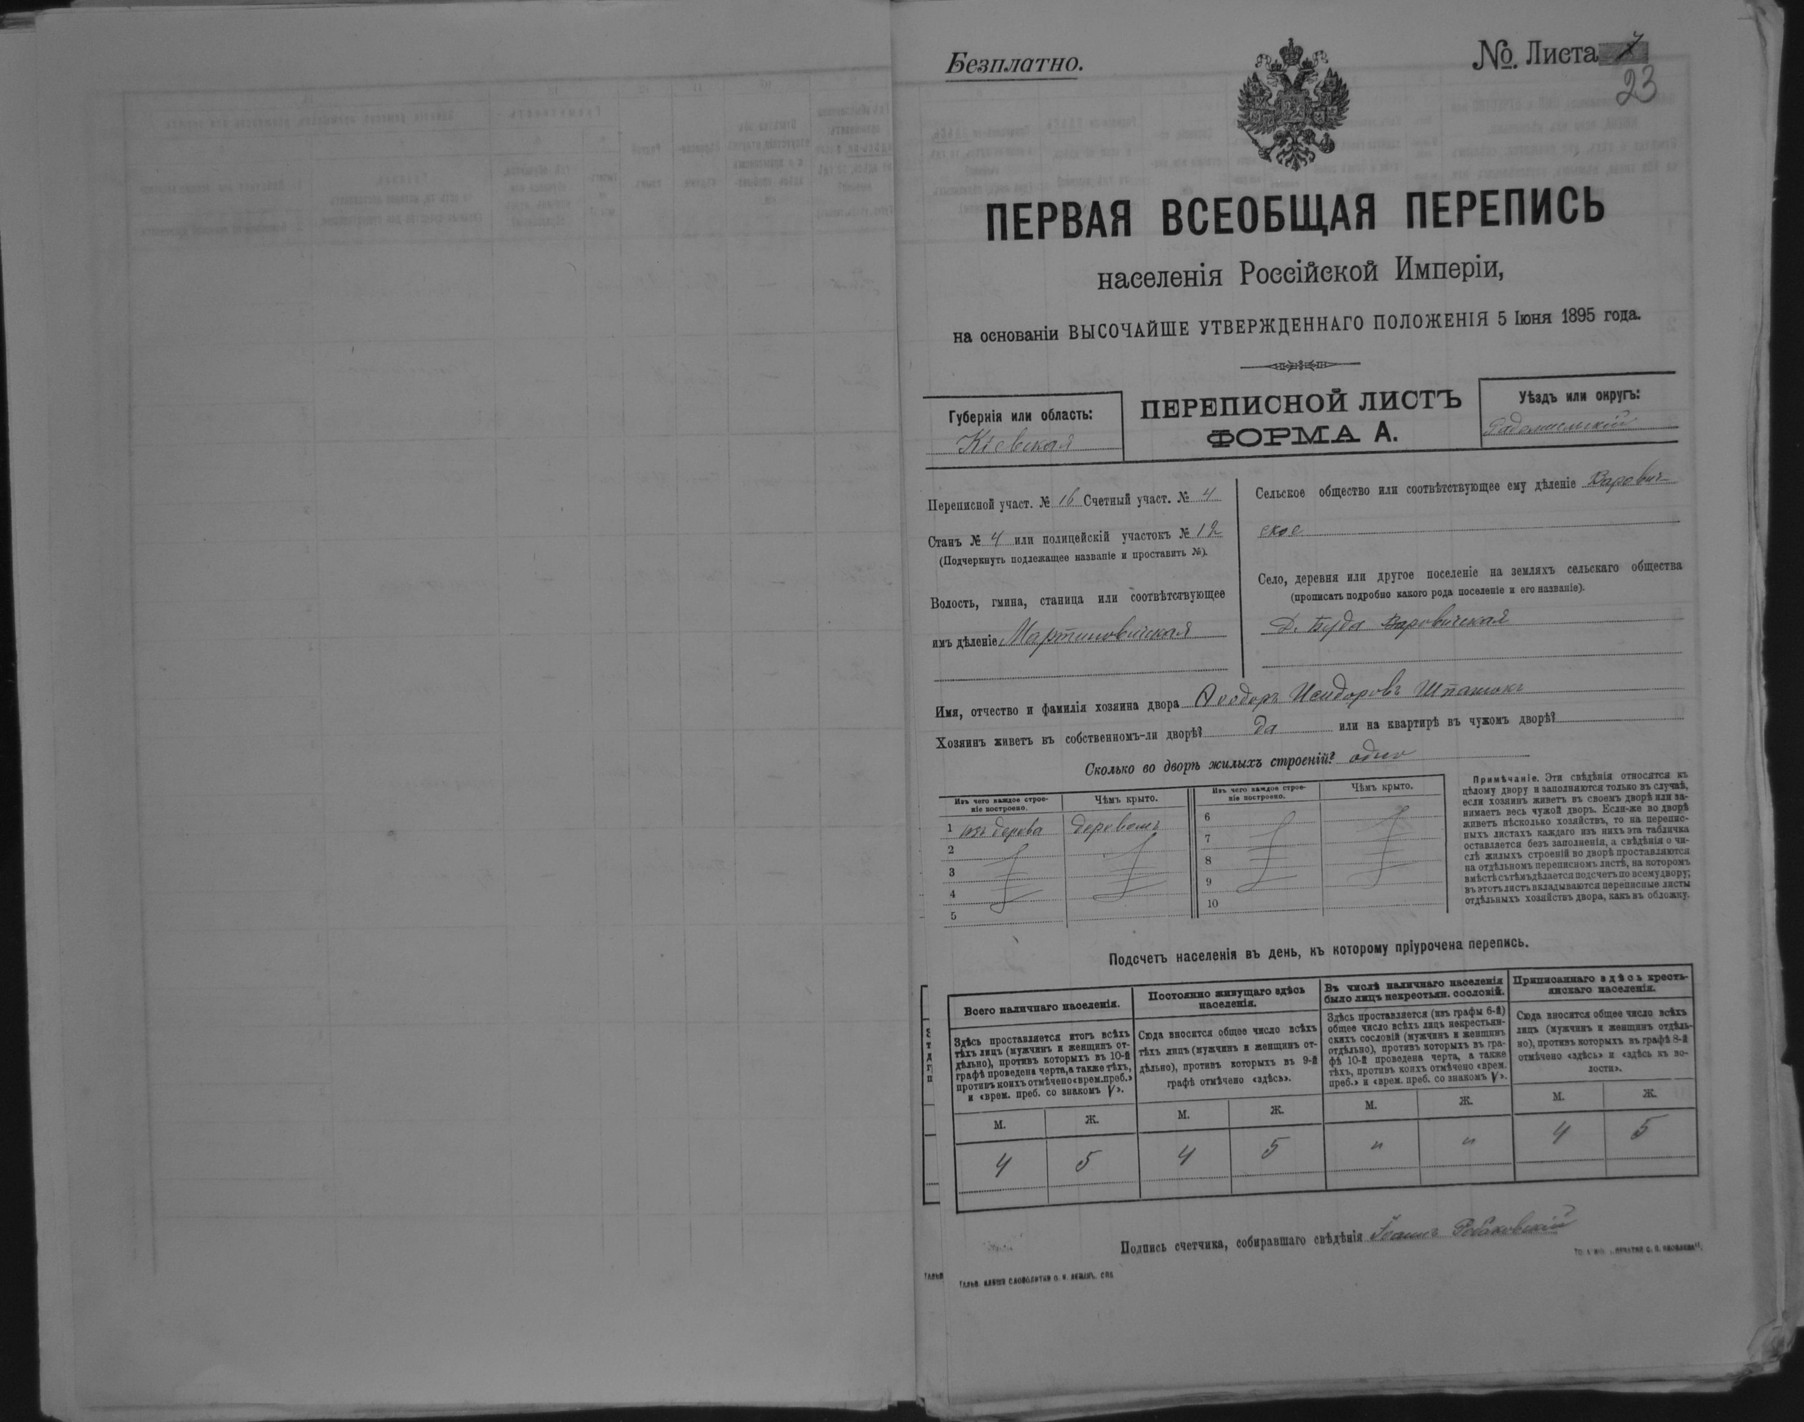 Безплатно.
№. Листа 7
23
ПЕРВАЯ ВСЕОБЩАЯ ПЕРЕПИСЬ
населенія Россійской Имперіи,
на основаніи ВЫСОЧАЙШЕ УТВЕРЖДЕННАГО ПОЛОЖЕНІЯ 5 Іюня 1895 года.
Губернія или область:
Кіевская
ПЕРЕПИСНОЙ ЛИСТЪ
ФОРМА А.
Уѣздъ или округъ:
Радомысльскій
Переписной участ. № 16 Счетный участ. № 4
Станъ № 4 или полицейскій участокъ № 12
(Подчеркнуть подлежащее названіе и проставить №).
Волость, гмина, станица или соотвѣтствующее
имъ дѣленіе Мартиновичская
Сельское общество или соотвѣтствующее ему дѣленіе Варович-
ское
Село, деревня или другое поселеніе на земляхъ сельскаго общества
(прописать подробно какого рода поселеніе и его названіе).
Д. Буда Варовичская
Имя, отчество и фамилія хозяина двора Ѳеодоръ Исидоровъ Шпашокъ
Хозяинъ живетъ въ собственномъ-ли дворѣ? да или на квартирѣ въ чужомъ дворѣ?
Сколько во дворѣ жилыхъ строеній? одно
Изъ чего каждое строе-
ніе построено.
Чѣмъ крыто.
Изъ чего каждое строе-
ніе построено.
Чѣмъ крыто.
1 изъ дерева деревомъ
2
3
4
5
6
7
8
9
10
Примѣчаніе. Эти свѣдѣнія относятся къ
цѣлому двору и заполняются только въ случаѣ,
если хозяинъ живетъ въ своемъ дворѣ или за-
нимаетъ весь чужой дворъ. Если-же во дворѣ
живетъ нѣсколько хозяйствъ, то на перепис-
ныхъ листахъ каждаго изъ нихъ эта табличка
оставляется безъ заполненія, а свѣдѣнія о чи-
слѣ жилыхъ строеній во дворѣ проставляются
на отдѣльномъ переписномъ листѣ, на которомъ
вмѣстѣ съ тѣмъ дѣлается подсчетъ по всему двору;
въ этотъ листъ вкладываются переписные листы
отдѣльныхъ хозяйствъ двора, какъ въ обложку.
Подсчетъ населенія въ день, къ которому пріурочена перепись.
Всего наличнаго населенія.
Здѣсь проставляется итогъ всѣхъ
тѣхъ лицъ (мужчинъ и женщинъ от-
дѣльно), противъ которыхъ въ 10-й
графѣ проведена черта, а также тѣхъ,
противъ коихъ отмѣчено «врем. преб.»
и «врем. преб. со знакомъ V».
Постоянно живущаго здѣсь
населенія.
Сюда вносится общее число всѣхъ
тѣхъ лицъ (мужчинъ и женщинъ от-
дѣльно), противъ которыхъ въ 9-й
графѣ отмѣчено «здѣсь».
Въ числѣ наличнаго населенія
было лицъ некрестьян. сословій.
Здѣсь проставляется (изъ графы 6-й)
общее число всѣхъ лицъ некрестьян-
скихъ сословій (мужчинъ и женщинъ
отдѣльно), противъ которыхъ въ гра-
фѣ 10-й проведена черта, а также
тѣхъ, противъ коихъ отмѣчено «врем.
преб.» и «врем. преб. со знакомъ V».
Приписаннаго здѣсь кресть-
янскаго населенія.
Сюда вносится общее число всѣхъ
лицъ (мужчинъ и женщинъ отдѣль-
но), противъ которыхъ въ графѣ 8-й
отмѣчено «здѣсь» и «здѣсь къ во-
лости».
М. Ж. М. Ж. М. Ж. М. Ж.
4 5 4 5 „ „ 4 5
Подпись счетчика, собиравшаго свѣдѣнія Іоаннъ